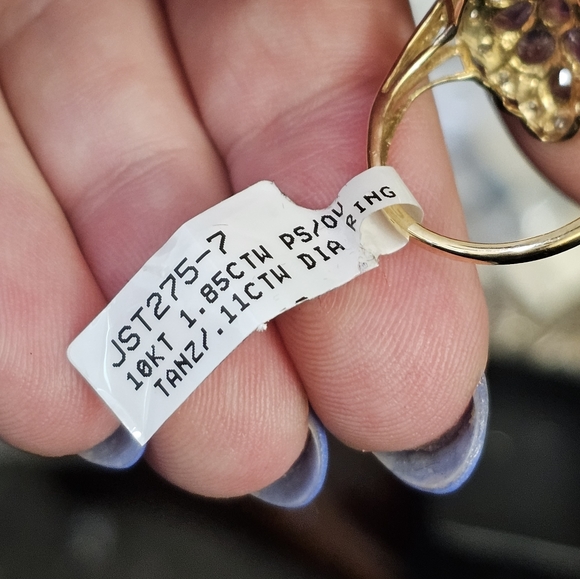 JST275-7
10KT 1.85CTW PS/OV
TANZ/.11CTW DIA RING